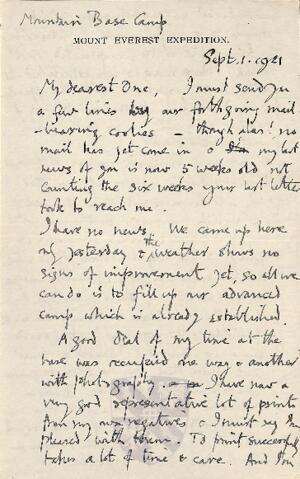 Mountain Base Camp
MOUNT EVEREST EXPEDITION.
Sept. 1. 1921
My dearest One, I must send you
a few lines by our forthgoing mail
-bearing coolies – though alas! no
mail has yet come in & my last
news of you is now 5 weeks old not
counting the six weeks your last letter
took to reach me.
I have no news. We came up here
only yesterday & the weather shows no
signs of improvement yet, so all we
can do is to fill up our advanced
camp which is already established.
A good deal of my time at the
base was occupied one way & another
with photography. I have now a
very good representative lot of prints
from my own negatives & I must say I'm
pleased with them. To print successfully
takes a lot of time & care. And I'm